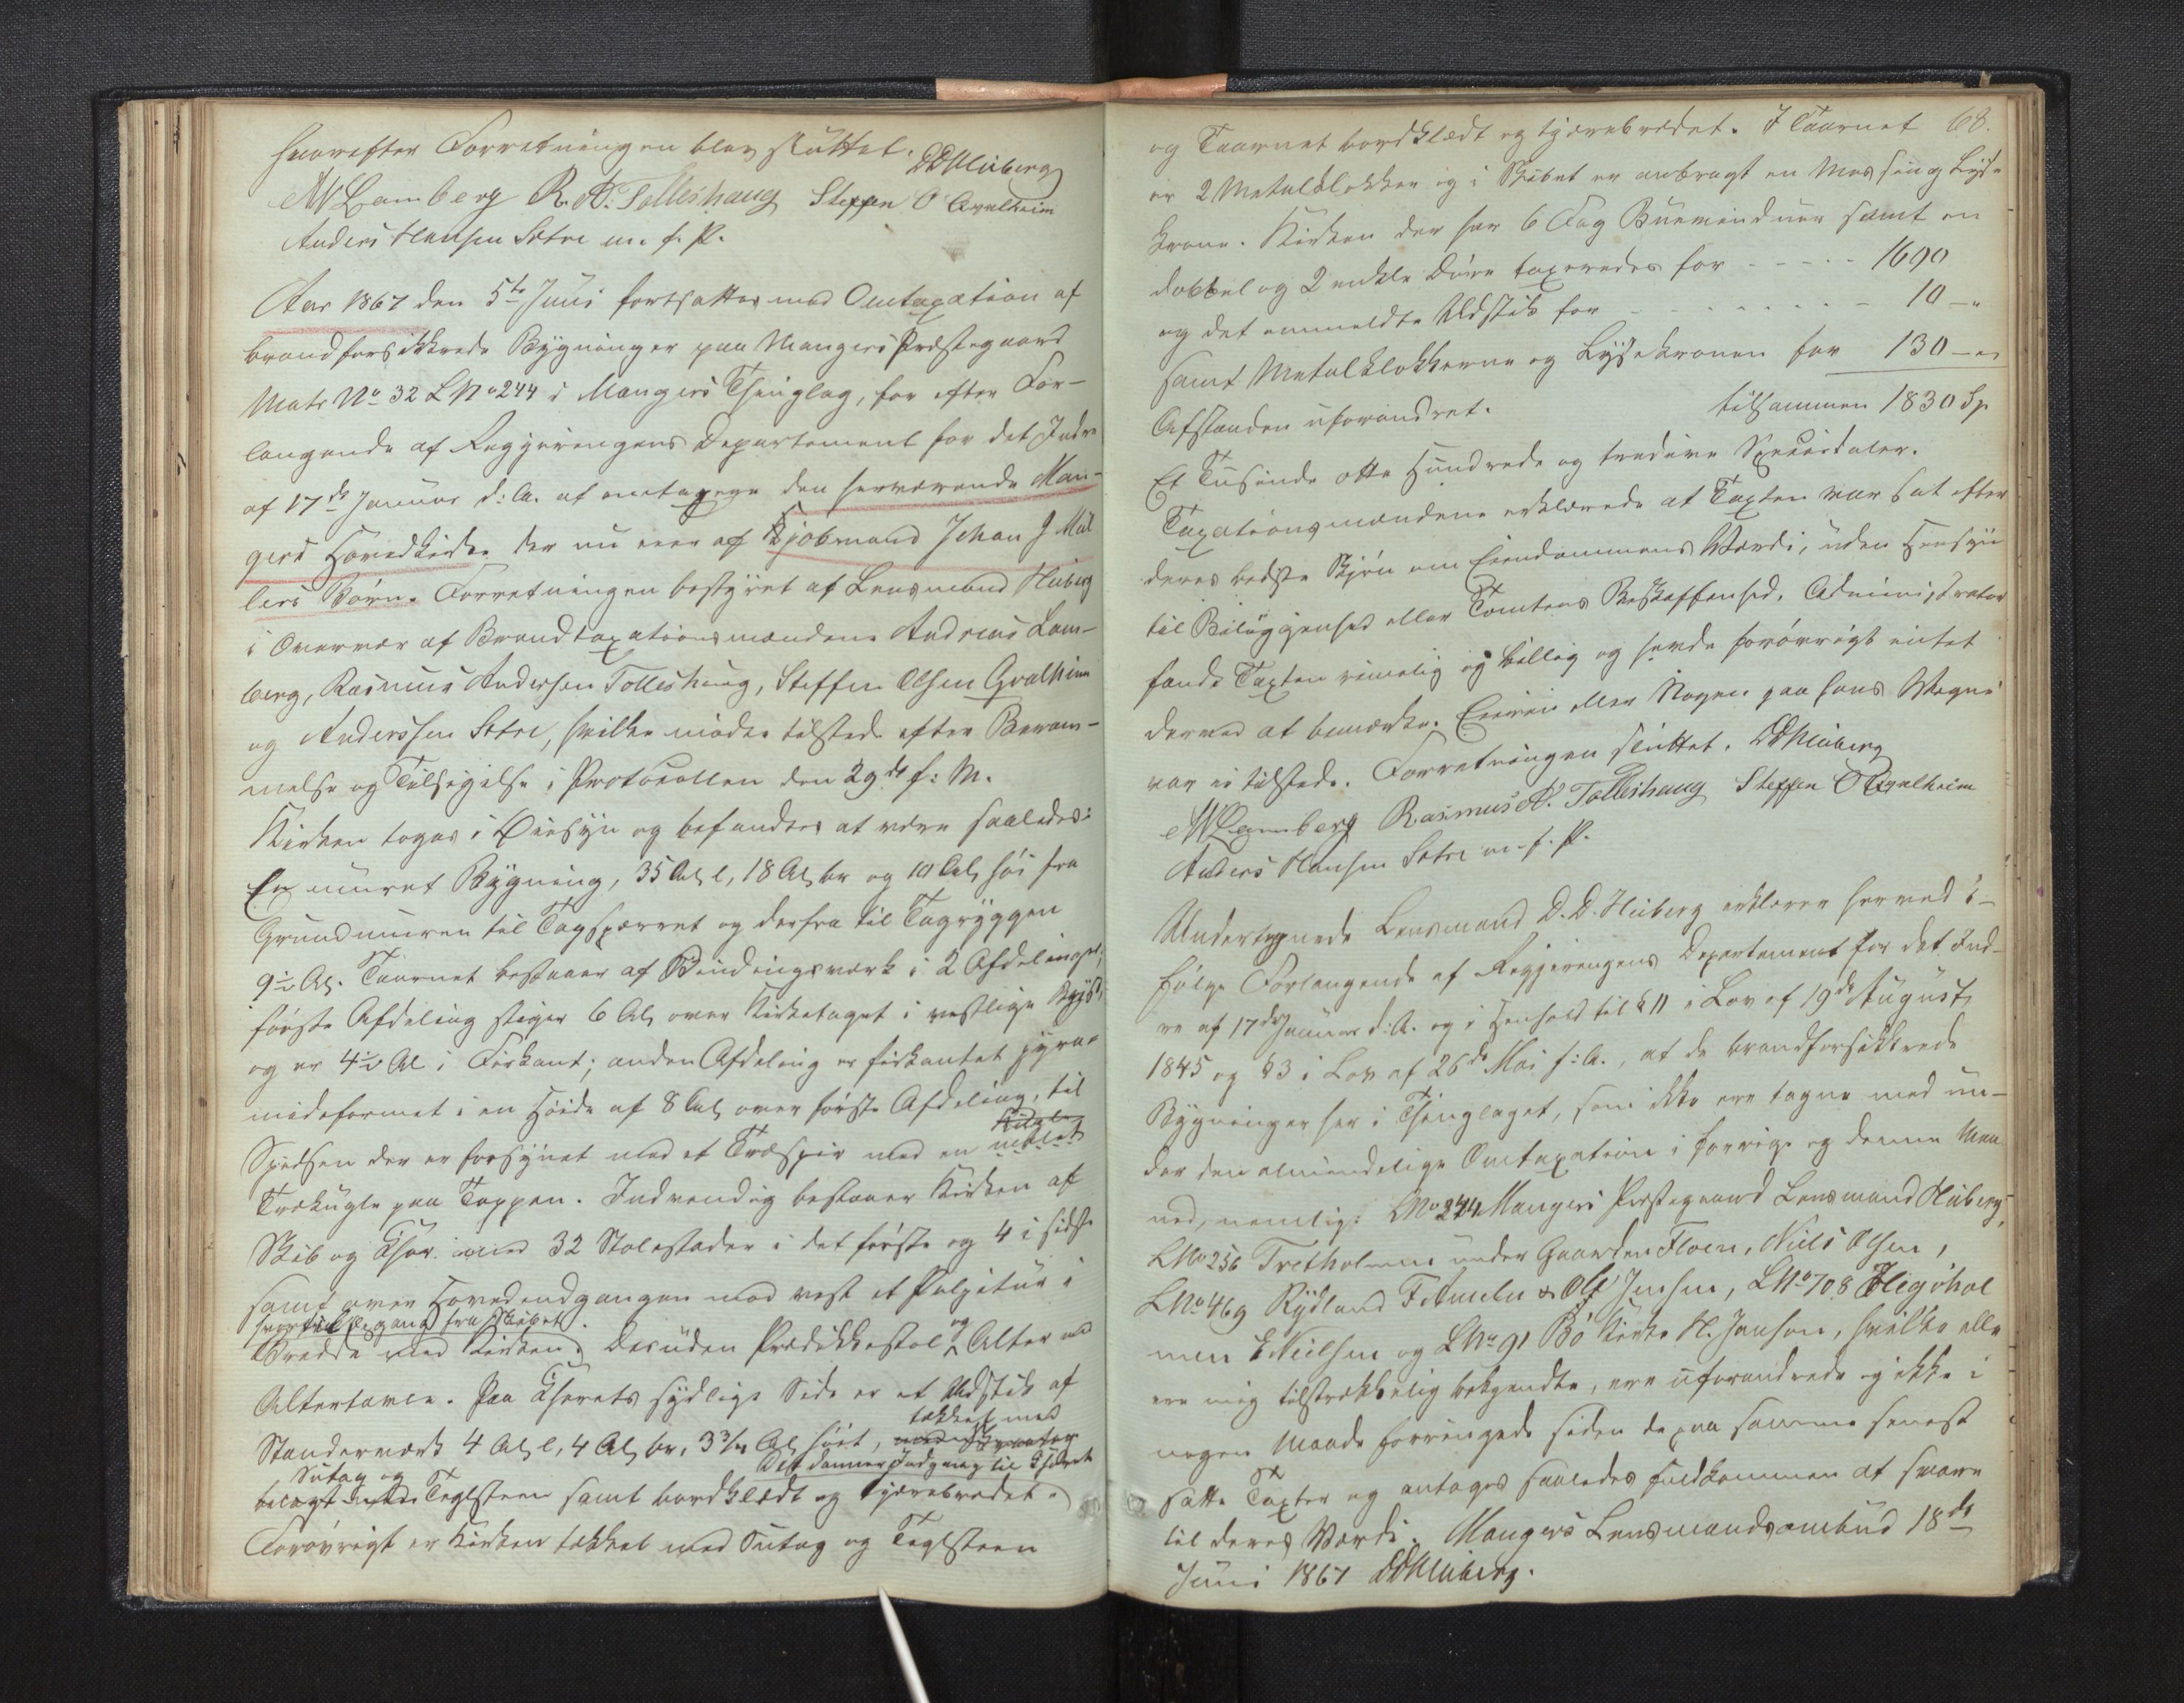 hvorefter Forretningen blev sluttet. DDHuberg
AN Lamberg R. A. Tolleshaug Steffen O Qvalheim
Anders Hansen Sætre m. f. P.
Aar 1867 den 5te Juni fortsattes med Omtaxation af
brandforsikkrede Bygninger paa Mangers Præstegaard
Matr No 32 LNo 244 i Mangers Thinglag, for efter For-
langende af Regjeringens Departement for det Indre
af 17de Januar d: A. at omtaxere den herværende Man-
gers Hovedkirke der nu eies af Kjøbmand Johan J Mül
lers Børn. Forretningen bestyret af Lensmand Huberg
i Overvær af Brandtaxationsmændene Andreas Lam-
berg, Rasmus Andersen Tolleshaug, Steffen Olsen Qvalheim
og Anderssen Sætre, hvilke mødte tilstede efter Beram-
melse og Tilsigelse i Protocollen den 29de f: M.
Kirken toges i Øiesyn og befandtes at være saaledes:
En muret Bygning, 35 Al l, 18 Al br og 10 Al høi fra
Grundmuren til Tagsperret og derfra til Tagryggen
9½ Al. Taarnet bestaaer af Bindingsværk i 2 Afdelinger,
første Afdeling stiger 6 Al over Kirketaget i vestlige Bygst,
og er 4½ Al i Firkant; anden Afdeling er firkantet pyra-
mideformet i en Høide af 8 Al over første Afdeling, til
Spidsen der er forsynet med et Træspir med en malet
Trækugle paa Toppen. Indvendig bestaaer Kirken af
Skib og Chor med 32 Stolestader i det første og 4 i sidste
samt over Hovedindgangen mod vest et Pulpitur i
hvortil Opgang fra Skibet.
Bredde med Kirken, desuden Prædikkestol og Alter med
Altertavle. Paa Chorets sydlige Side er et Udstik af
tækket med
Standerværk 4 Al l, 4 Al br, 3¾ Al høit,
Det danner Indgang til Choret
Sutag og
belagt med Teglsteen samt bordklædt og tjærebredet.
Forøvrigt er Kirken tækket med Sutag og Teglsteen
68.
og Taarnet bordklædt og tjærebredet. I Taarnet
er 2 Metalklokker og i Skibet er anbragt en Messing Lyse
krone. Kirken der har 6 Fag Buevinduer samt en
dobbel og 2 enkle Døre taxeredes for - - - - - 1690
og det anmeldte Udstik for - - - - - - - - 10 - "
samt Metalklokkerne og Lysekronen for 130 - "
Afstanden uforandret. tilsammen 1830 Sp
Et Tusinde otte Hundrede og tredive Speciedaler.
Taxationsmændene erklærede at Taxten var sat efter
deres bedste Skjøn om Eiendommens Værdi, uden Hensyn
til Beliggenhed eller Tomtens Beskaffenhed. Administrator
fandt Taxten rimelig og billig og havde forøvrigt intet
derved at bemærke. Eieren eller Nogen paa hans Vegne
var ei tilstede. Forretningen sluttet. DDHuberg
AN Lamberg Rasmus A. Tolleshaug Steffen O Qvalheim
Anders Hansen Sætre m. f. P.
Undertegnede Lensmand D. D. Huberg erklærer herved i-
følge Forlangende af Regjeringens Departement for det Ind-
re af 17de Januar d: A. og i Henhold til § 11 i Lov af 19de August
1845 og § 3 i Lov af 26de Mai f: A., at de brandforsikkrede
Bygninger her i Thinglaget, som ikke ere tagne med un-
der den almindelige Omtaxation i forrige og denne Maa
ned, nemlig: LNo 244 Mangers Præstegaard Lensmand Huberg,
LNo 256 Tretholmen under Gaarden Floen, Niels Olsen,
LNo 469 Rydland Olsen Jensen, LNo 708
men E Nielsen og LNo 91 Bø H. Janson, hvilke alle
ere mig tilstrækkelig bekjendte, ere uforandrede og ikke i
nogen Maade forringede siden de paa samme senest
satte Taxter og antages saaledes fuldkommen at svare
til deres Værdi. Mangers Lensmandsombud 18de
Juni 1867 DDHuberg.